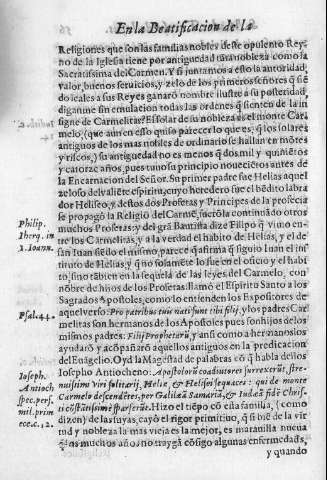 En la Beatificacion de la
Religiones que son las familias nobles deste opulento Rey-
no de la Iglesia tiene por antiguedad tu a nobleza como la
Sacratissima del Carmen. Y si juntamos a esto la autoridad,
valor, buenos seruicios, y zelo de los primeros señores q̃ siẽ
do leales a sus Reyes ganarõ nombre ilustre a su posteridad,
diganme sin emulacion todas las ordenes q̃ sienten de la in
signe de Carmelitas? El solar de su nobleza es el monte Car
melo, (que aun en esso quiso parecer lo que es, q̃ los solares
antiguos de los mas nobles de ordinario se hallan en mõtes
y riscos,) su antiguedad no es menos q̃ dos mil y quiniẽtos
y catorze años, pues tuuo su principio nouecietos antes de
la Encarnacion del Señor. Su primer padre fue Helias aquel
zeloso del valiẽte espiritu, cuyo heredero fue el bẽdito labra
dor Heliseo, y destos dos Profetas y Principes de la profecia
se propagò la Religiõ del Carmẽ, fuerõla continuãdo otros
Philip. muchos Profetas: y del grã Bautista dize Filipo q̃ vino en-
Iberq. in tre los Carmelitas, y a la verdad el habito de Helias, y el de
1. Ioann. san Iuan siẽdo el mismo, parece q̃ afirma q̃ siguio Iuan el ins
tituto de Helias, y q̃ no solamẽte lo fue en el oficio y el habi
to, sino tãbien en la sequela de las leyes del Carmelo, con
nõbre de hijos de los Profetas llamò el Espiritu Santo a los
Sagrados Apostoles, como lo entienden los Expositores de
Psal. 44. aquel verso: Pro patribus tuis nati sunt tibi filij, y los padres Car
melitas son hermanos de los Apostoles pues son hijos de los
mismos padres: Filij Prophetarũ, y ansi como a hermanos los
ayudarõ y acõpañarõ aquellos antiguos en la predicacion
Ioseph. del Euãgelio. Oyd la Magestad de palabras cõ q̃ habla dellos
Antioch Iosepho Antiocheno: Apostolorũ coadiutores surrexerũt, stre-
spec. perf. nuissimi viri solitarij, Heliæ, & Helisei sequaces: qui de monte
mil. prim Carmelo descendẽtes, per Galilæã Samariã, & Iudeã fidẽ Chris-
ecc. c. 12. ti cõstãtissimè sparserũt. Hizo el tiẽpo cõ esta familia, (como
dizen) de las suyas, cayò el rigor primitiuo, q̃ si biẽ de la vir
tud y nobleza la mas vieja es la mejor, es marauilla nueua
q̃ los muchos años no traygã cõsigo algunas enfermedads,
y quando